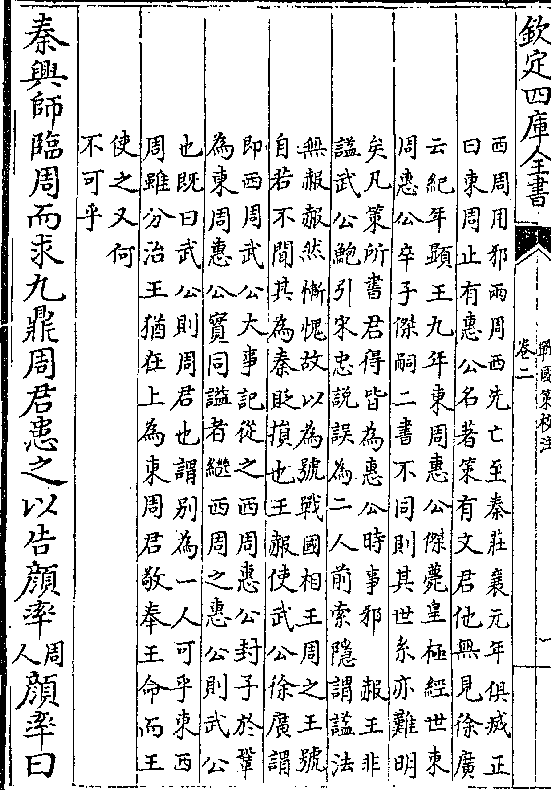 欽定四庫全書
戰國策校注
卷二
一
西周用邪兩周西先亡至秦莊襄元年俱㓕正
曰東周止有惠公名著策有文君他無見徐廣
云紀年顯王九年東周惠公傑薨皇極經世東
周惠公卒子傑嗣二書不同則其世系亦難明
矣凡策所書君得皆為惠公時事邪　赧王非
謚武公鮑引宋忠説誤為二人前索隱謂謚法
無赧赧然慚愧故以為號戰國相王周之王號
自若不聞其為秦貶損也王赧使武公徐廣謂
即西周武公大事記從之西周惠公封子於鞏
為東周惠公實同謚者繼西周之惠公則武公
也既曰武公則周君也謂別為一人可乎東西
周雖分治王猶在上為東周君敬奉王命而王
使之又何
不可乎
秦興師臨周而求九鼎周君患之以告顔率周人顔率曰